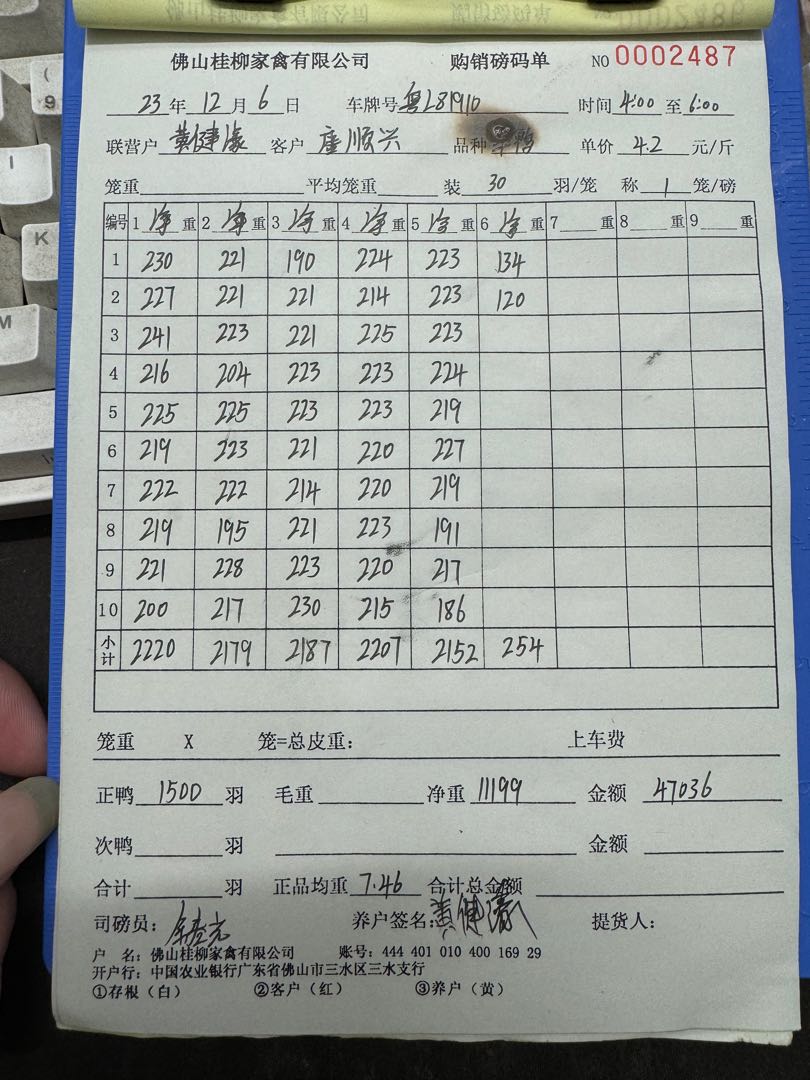 佛山桂柳家禽有限公司 购销磅码单 NO 0002487
23 年 12 月 6 日 车牌号 粤L81910 时间 4:00 至 6:00
联营户 黄健濠 客户 唐顺兴 品种 鸭 单价 4.2 元/斤
笼重 平均笼重 装 30 羽/笼 称 1 笼/磅
编号 1 净 重 2 净 重 3 净 重 4 净 重 5 净 重 6 净 重 7 重 8 重 9 重
1 230 221 190 224 223 134
2 227 221 221 214 223 120
3 241 223 221 225 223
4 216 204 223 223 224
5 225 225 223 223 219
6 219 223 221 220 227
7 222 222 214 220 219
8 219 195 221 223 191
9 221 228 223 220 217
10 200 217 230 215 186
小计 2220 2179 2187 2207 2152 254
笼重 X 笼=总皮重: 上车费
正鸭 1500 羽 毛重 净重 11199 金额 47036
次鸭 羽 金额
合计 羽 正品均重 7.46 合计总金额
司磅员: 养户签名: 黄健濠 提货人:
户 名: 佛山桂柳家禽有限公司 账号: 444 401 010 400 169 29
开户行: 中国农业银行广东省佛山市三水区三水支行
①存根(白) ②客户(红) ③养户(黄)